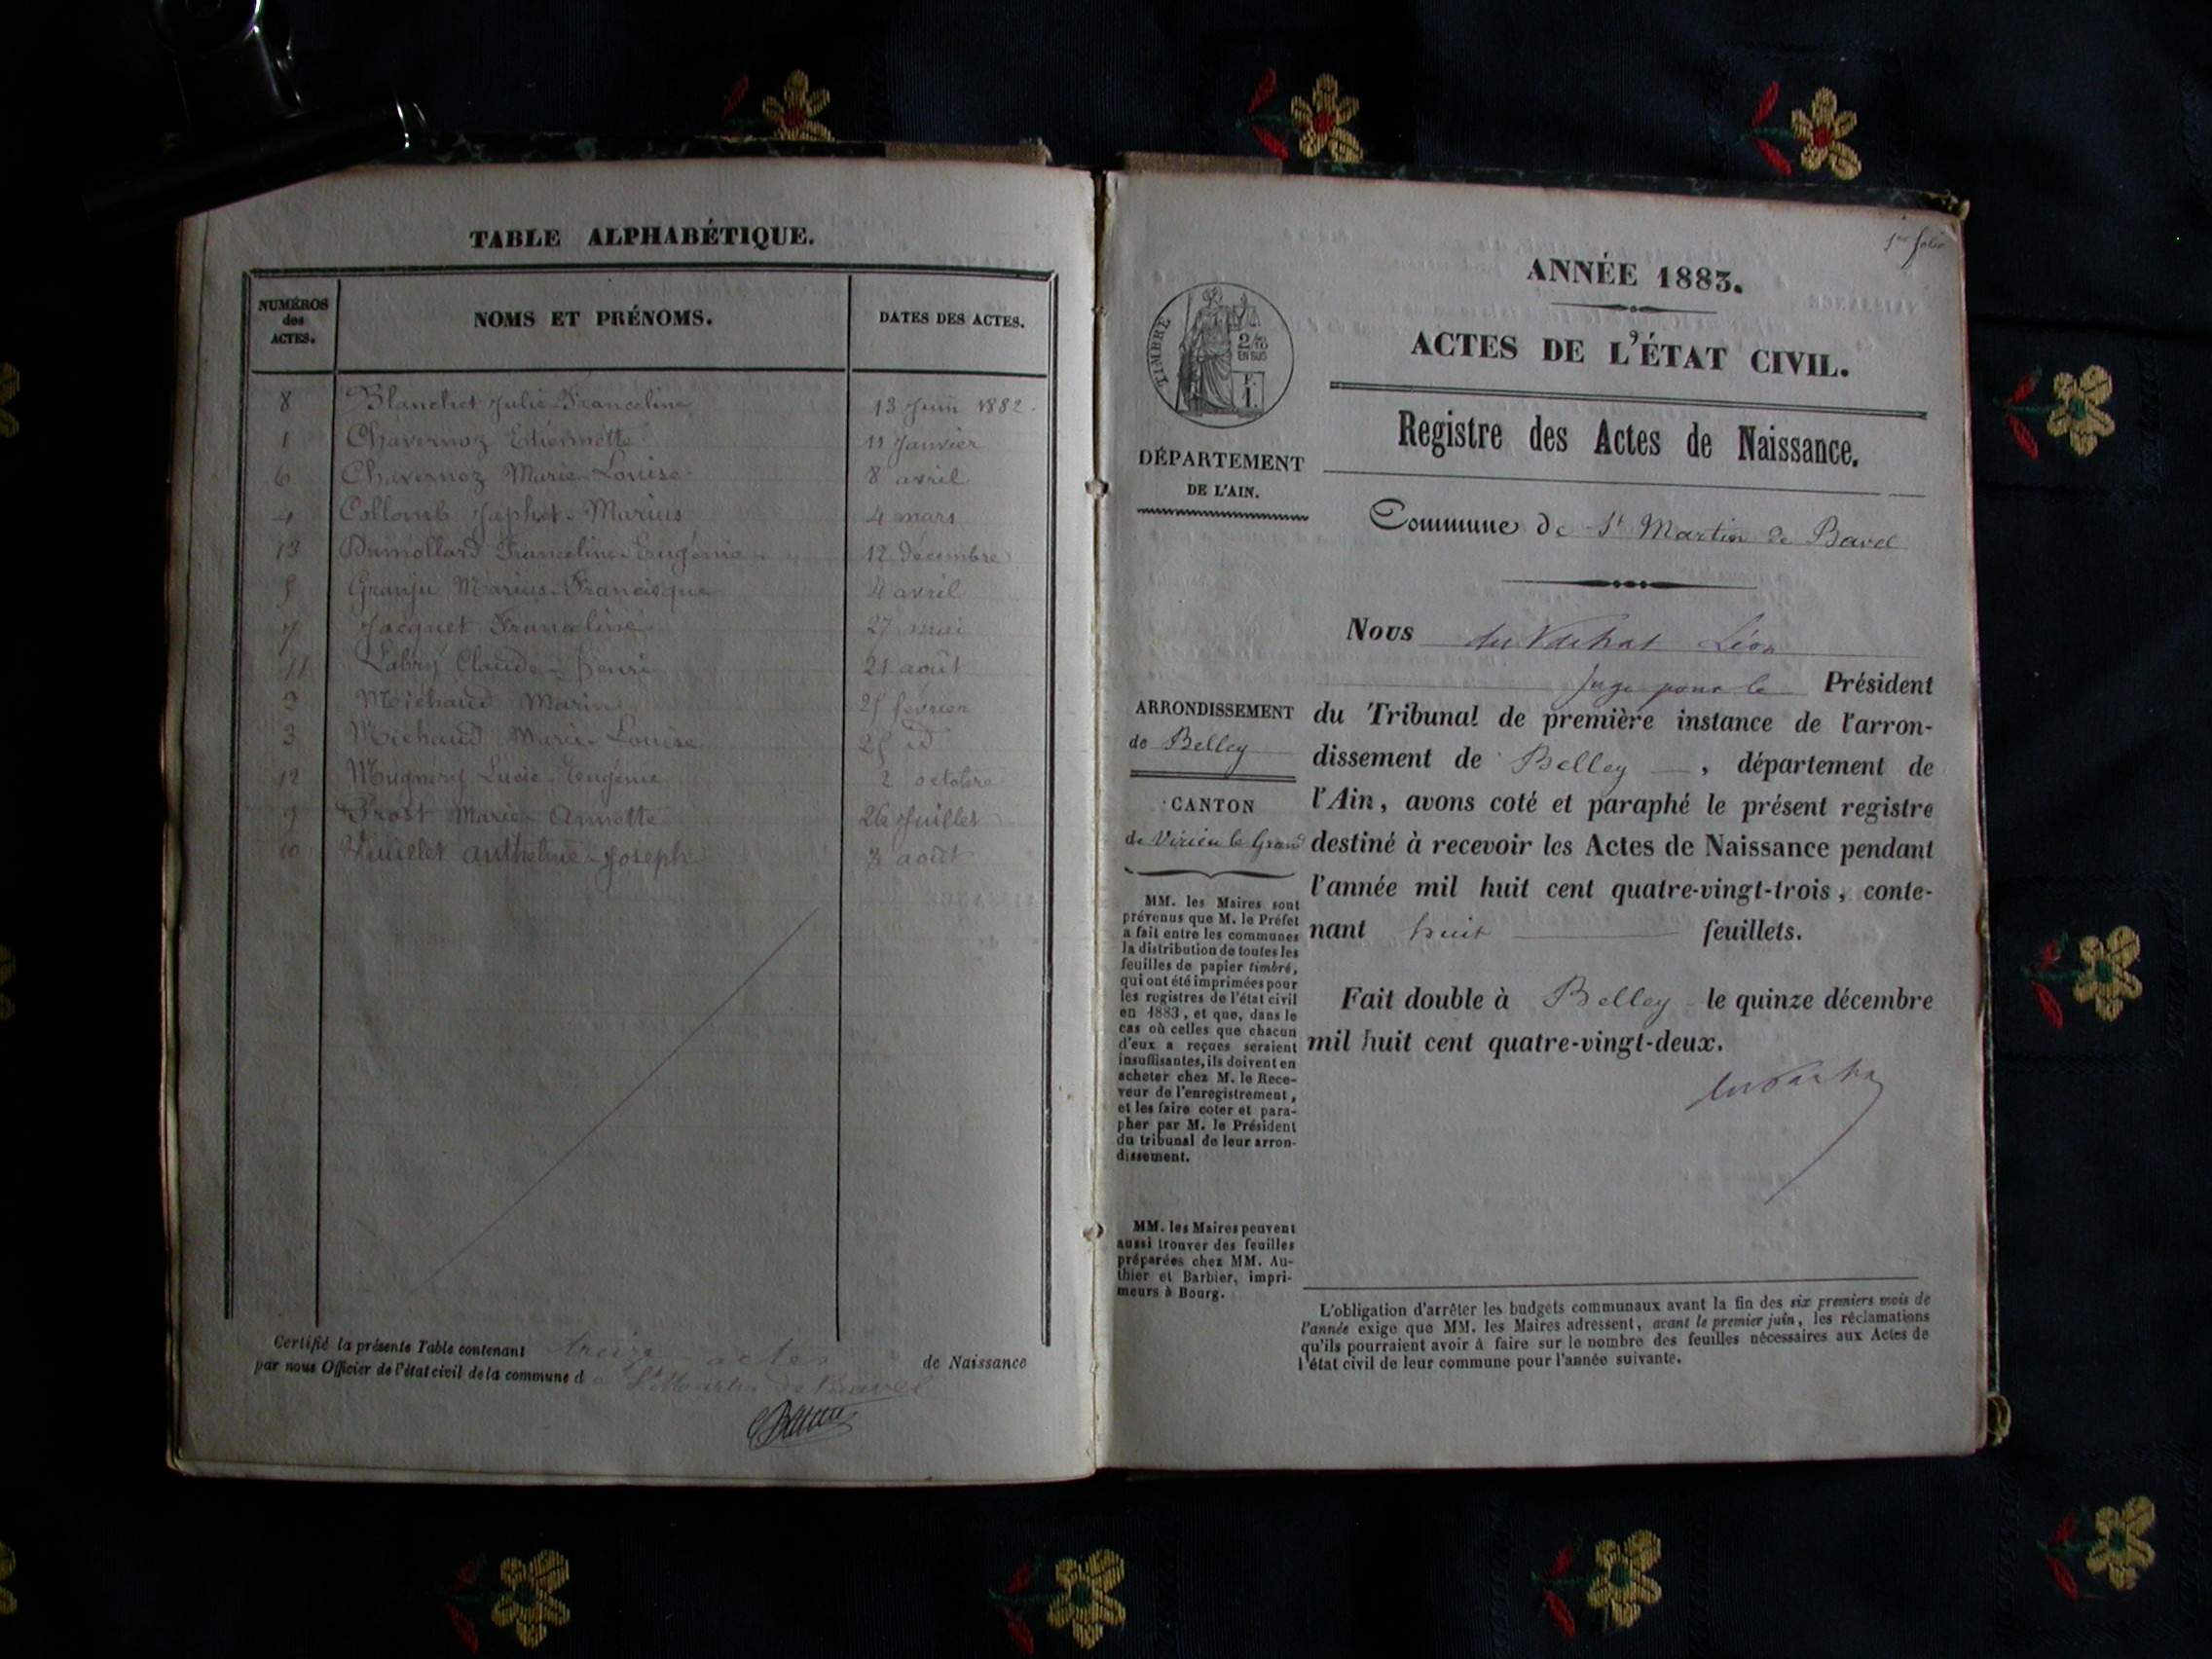 TABLE ALPHABÉTIQUE.
NUMÉROS des ACTES. NOMS ET PRÉNOMS. DATES DES ACTES.
8 Blanchet Julie-Franceline 13 Juin 1882.
1 Chavernoz Etiennette 11 Janvier
6 Chavernoz Marie-Louise 8 avril
4 Collomb Japhet-Marius 4 mars
13 Dumollard Franceline-Eugénie 12 décembre
5 Granju Marius-Francisque 4 avril
7 Jacquet Franceline 27 mai
11 Labry Claude-Henri 21 août
2 Michaud Marie 25 février
3 Michaud Marie-Louise 25 id
12 Mugnery Lucie-Eugénie 2 octobre
9 Prost Marie-Annette 26 Juillet
10 Vuillet Anthelme-Joseph 3 août
Certifié la présente Table contenant treize actes de Naissance
par nous Officier de l'état civil de la commune de St Martin de Bavel
1er folio
ANNÉE 1883.
ACTES DE L'ÉTAT CIVIL.
Registre des Actes de Naissance.
TIMBRE
2/10
EN SUS
F.
1.
DÉPARTEMENT
DE L'AIN.
Commune de St Martin de Bavel
Nous du Vachat Léon
Juge pour le Président
du Tribunal de première instance de l'arron-
dissement de Belley, département de
l'Ain, avons coté et paraphé le présent registre
destiné à recevoir les Actes de Naissance pendant
l'année mil huit cent quatre-vingt-trois, conte-
nant huit feuillets.
Fait double à Belley le quinze décembre
mil huit cent quatre-vingt-deux.
ARRONDISSEMENT
de Belley
CANTON
de Virieu le Grand
MM. les Maires sont
prévenus que M. le Préfet
a fait entre les communes
la distribution de toutes les
feuilles de papier timbré,
qui ont été imprimées pour
les registres de l'état civil
en 1883, et que, dans le
cas où celles que chacun
d'eux a reçues seraient
insuffisantes, ils doivent en
acheter chez M. le Rece-
veur de l'enregistrement,
et les faire coter et para-
pher par M. le Président
du tribunal de leur arron-
dissement.
MM. les Maires peuvent
aussi trouver des feuilles
préparées chez MM. Au-
thier et Barbier, impri-
meurs à Bourg.
L'obligation d'arrêter les budgets communaux avant la fin des six premiers mois de
l'année exige que MM. les Maires adressent, avant le premier juin, les réclamations
qu'ils pourraient avoir à faire sur le nombre des feuilles nécessaires aux Actes de
l'état civil de leur commune pour l'année suivante.